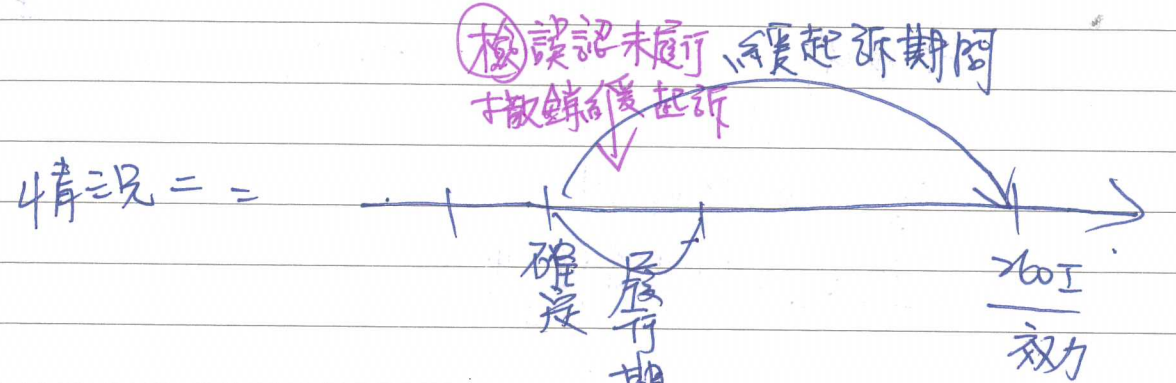 檢誤認未履行 緩起訴期間
撤銷緩起訴
情況二:
確定
履行期
260I
效力